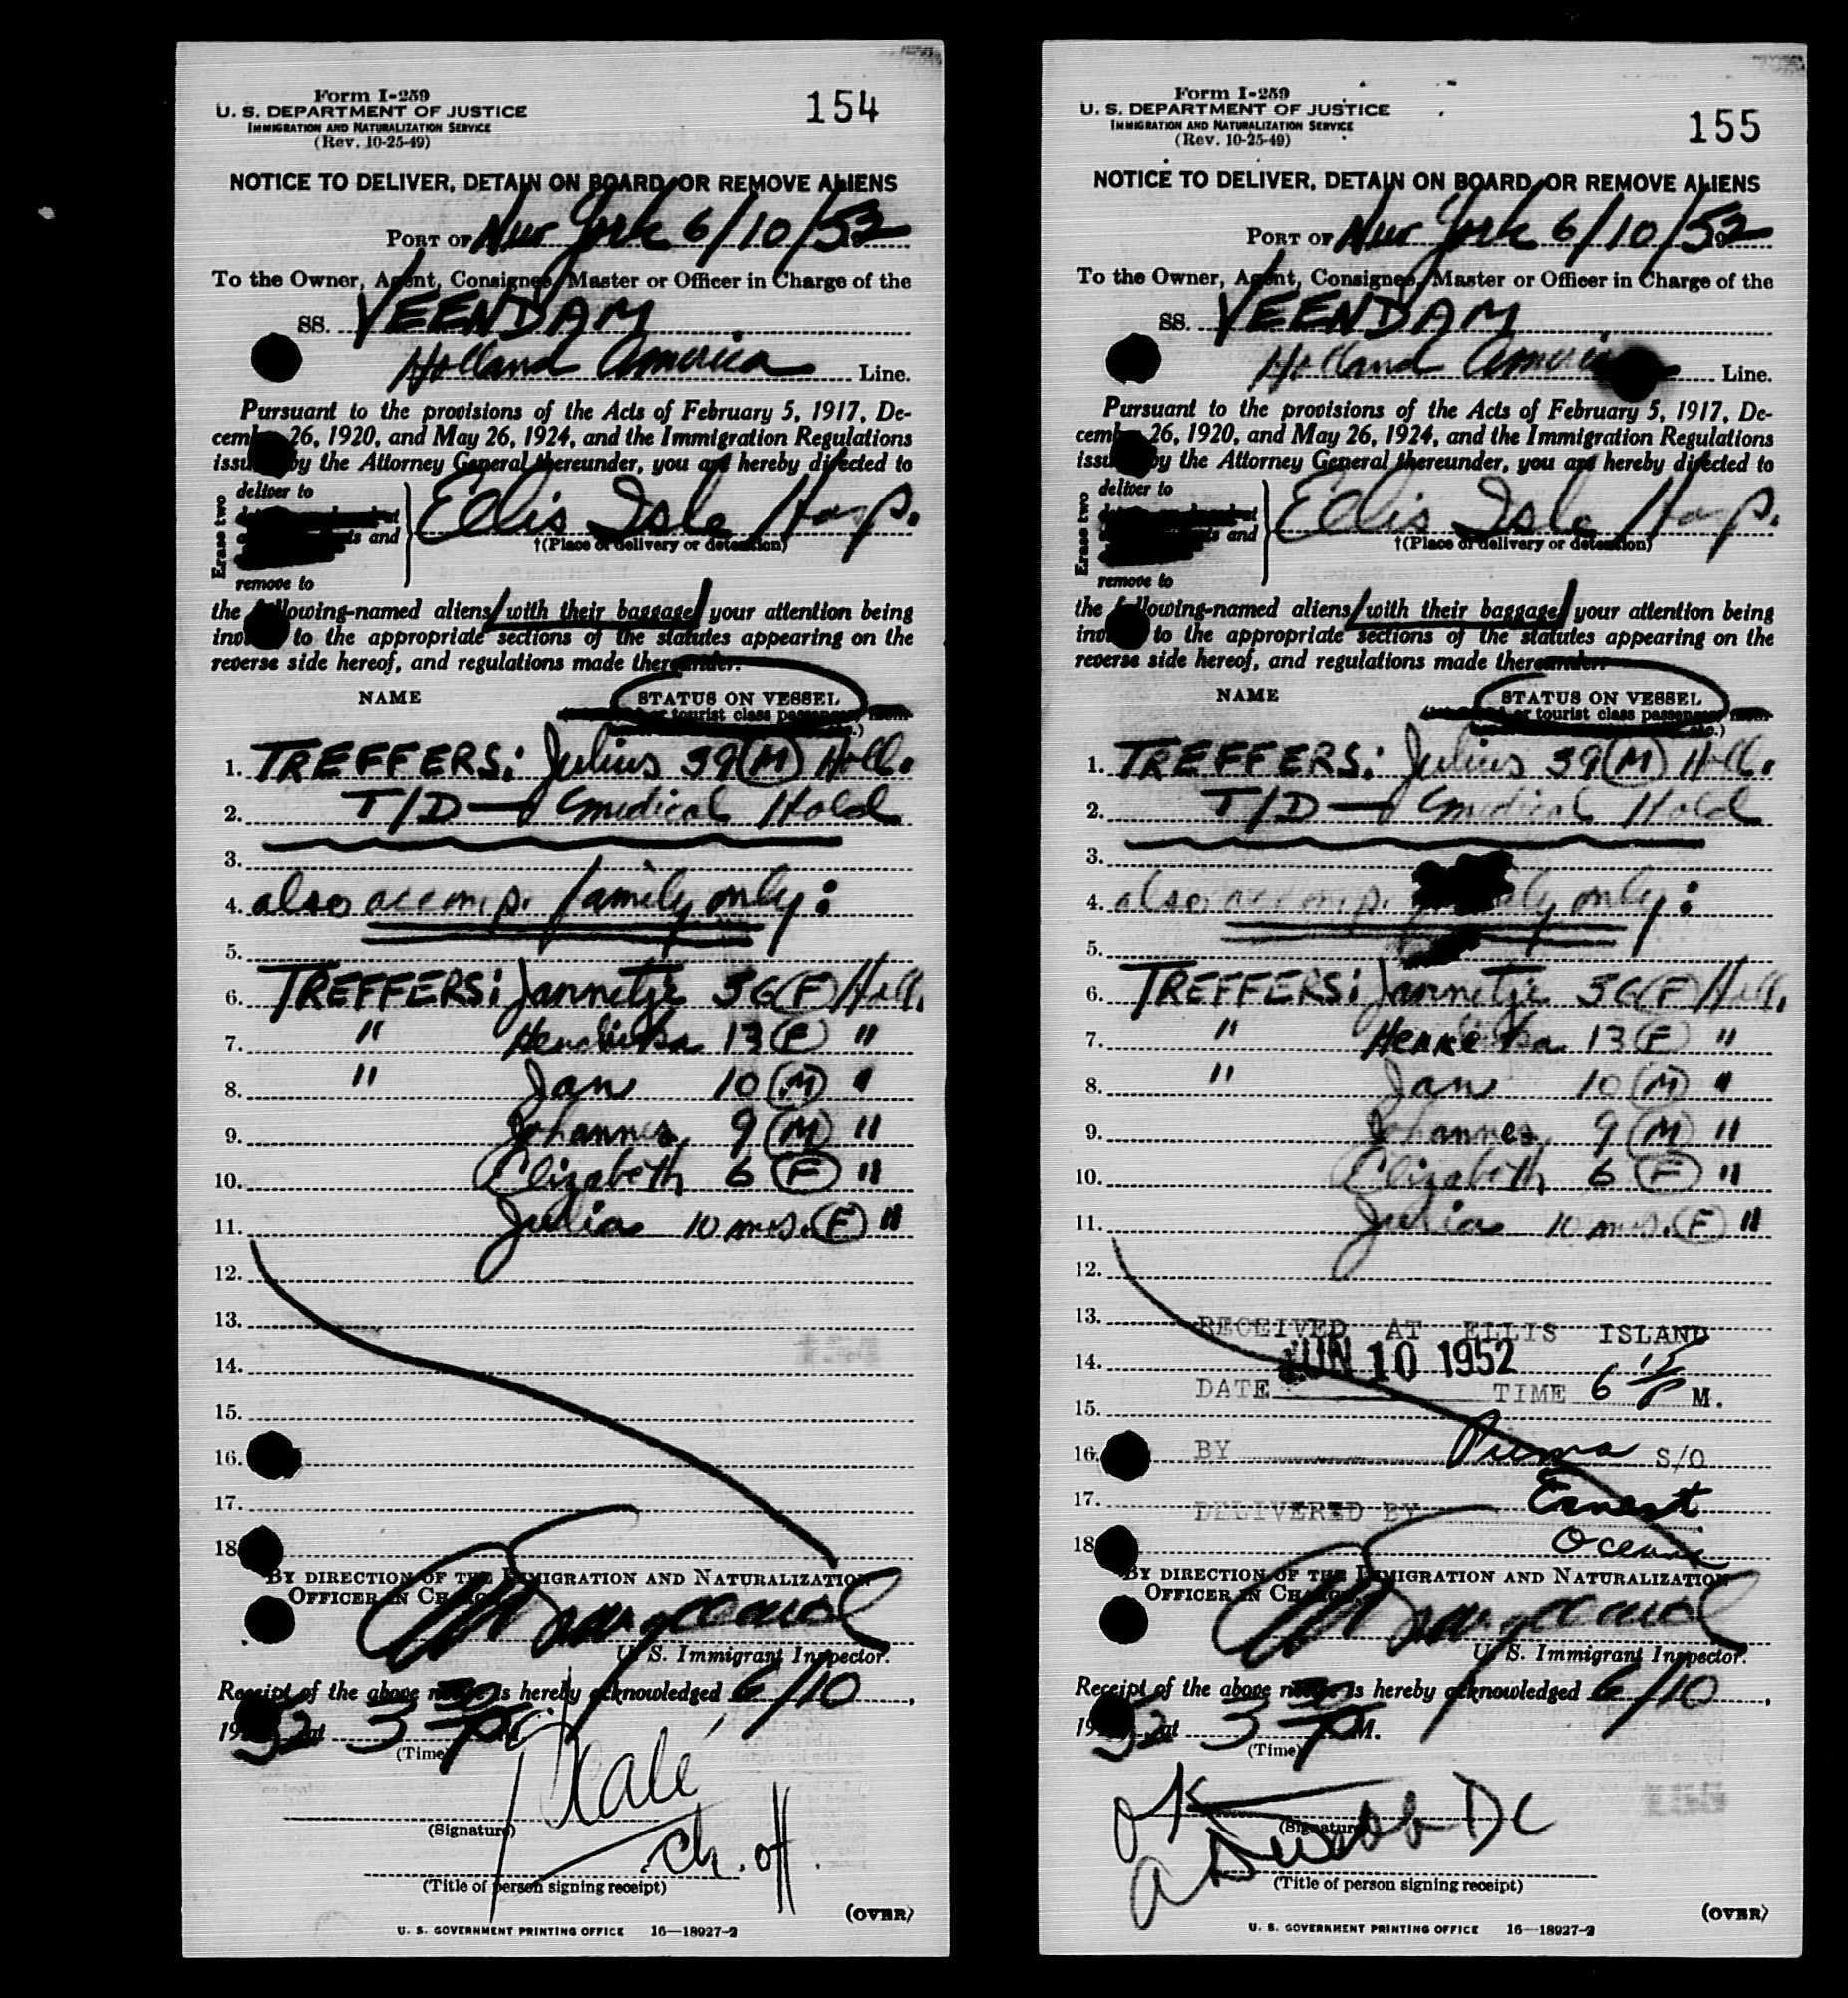 Form I-259
U. S. DEPARTMENT OF JUSTICE
IMMIGRATION AND NATURALIZATION SERVICE
(Rev. 10-25-49)
154
NOTICE TO DELIVER, DETAIN ON BOARD, OR REMOVE ALIENS
PORT OF New York 6/10/52
To the Owner, Agent, Consignee, Master or Officer in Charge of the
SS. VEENDAM
Holland America Line.
Pursuant to the provisions of the Acts of February 5, 1917, De-
cember 26, 1920, and May 26, 1924, and the Immigration Regulations
issued by the Attorney General thereunder, you are hereby directed to
Erase two
deliver to
and
remove to
Ellis Isle Hosp.
†(Place of delivery or detention)
the following-named aliens, with their baggage, your attention being
invited to the appropriate sections of the statutes appearing on the
reverse side hereof, and regulations made thereunder.
NAME STATUS ON VESSEL
or tourist class passenger,
1. TREFFERS: Julius 39 (M) Holl.
2. T/D — Medical Hold
3.
4. also accomp. family only:
5.
6. TREFFERS: Jannetje 36 (F) Holl.
7. " 13 (F) "
8. " Jan 10 (M) "
9. Johannes 9 (M) "
10. Elizabeth 6 (F) "
11. Julia 10 mos. (F) "
12.
13.
14.
15.
16.
17.
18
BY DIRECTION OF THE IMMIGRATION AND NATURALIZATION
OFFICER IN CHARGE
U. S. Immigrant Inspector.
Receipt of the above notice is hereby acknowledged 6/10,
1952 at 3 P M.
(Time)
(Signature)
Ch. off.
(Title of person signing receipt)
(OVER)
U. S. GOVERNMENT PRINTING OFFICE 16—18927-2
Form I-259
U. S. DEPARTMENT OF JUSTICE
IMMIGRATION AND NATURALIZATION SERVICE
(Rev. 10-25-49)
155
NOTICE TO DELIVER, DETAIN ON BOARD, OR REMOVE ALIENS
PORT OF New York 6/10/52
To the Owner, Agent, Consignee, Master or Officer in Charge of the
SS. VEENDAM
Holland America Line.
Pursuant to the provisions of the Acts of February 5, 1917, De-
cember 26, 1920, and May 26, 1924, and the Immigration Regulations
issued by the Attorney General thereunder, you are hereby directed to
Erase two
deliver to
and
remove to
Ellis Isle Hosp.
†(Place of delivery or detention)
the following-named aliens, with their baggage, your attention being
invited to the appropriate sections of the statutes appearing on the
reverse side hereof, and regulations made thereunder.
NAME STATUS ON VESSEL
or tourist class passenger,
1. TREFFERS: Julius 39 (M) Holl.
2. T/D — Medical Hold
3.
4. also accomp. family only:
5.
6. TREFFERS: Jannetje 36 (F) Holl.
7. " 13 (F) "
8. " Jan 10 (M) "
9. Johannes 9 (M) "
10. Elizabeth 6 (F) "
11. Julia 10 mos. (F) "
12.
13. RECEIVED AT ELLIS ISLAND
14. JUN 10 1952
DATE TIME 6 15 P M.
15.
16. BY S/O
17. DELIVERED BY Ernest
18
BY DIRECTION OF THE IMMIGRATION AND NATURALIZATION
OFFICER IN CHARGE
U. S. Immigrant Inspector.
Receipt of the above notice is hereby acknowledged 6/10,
1952 at 3 P M.
(Time)
OK
(Signature)
(Title of person signing receipt)
(OVER)
U. S. GOVERNMENT PRINTING OFFICE 16—18927-2